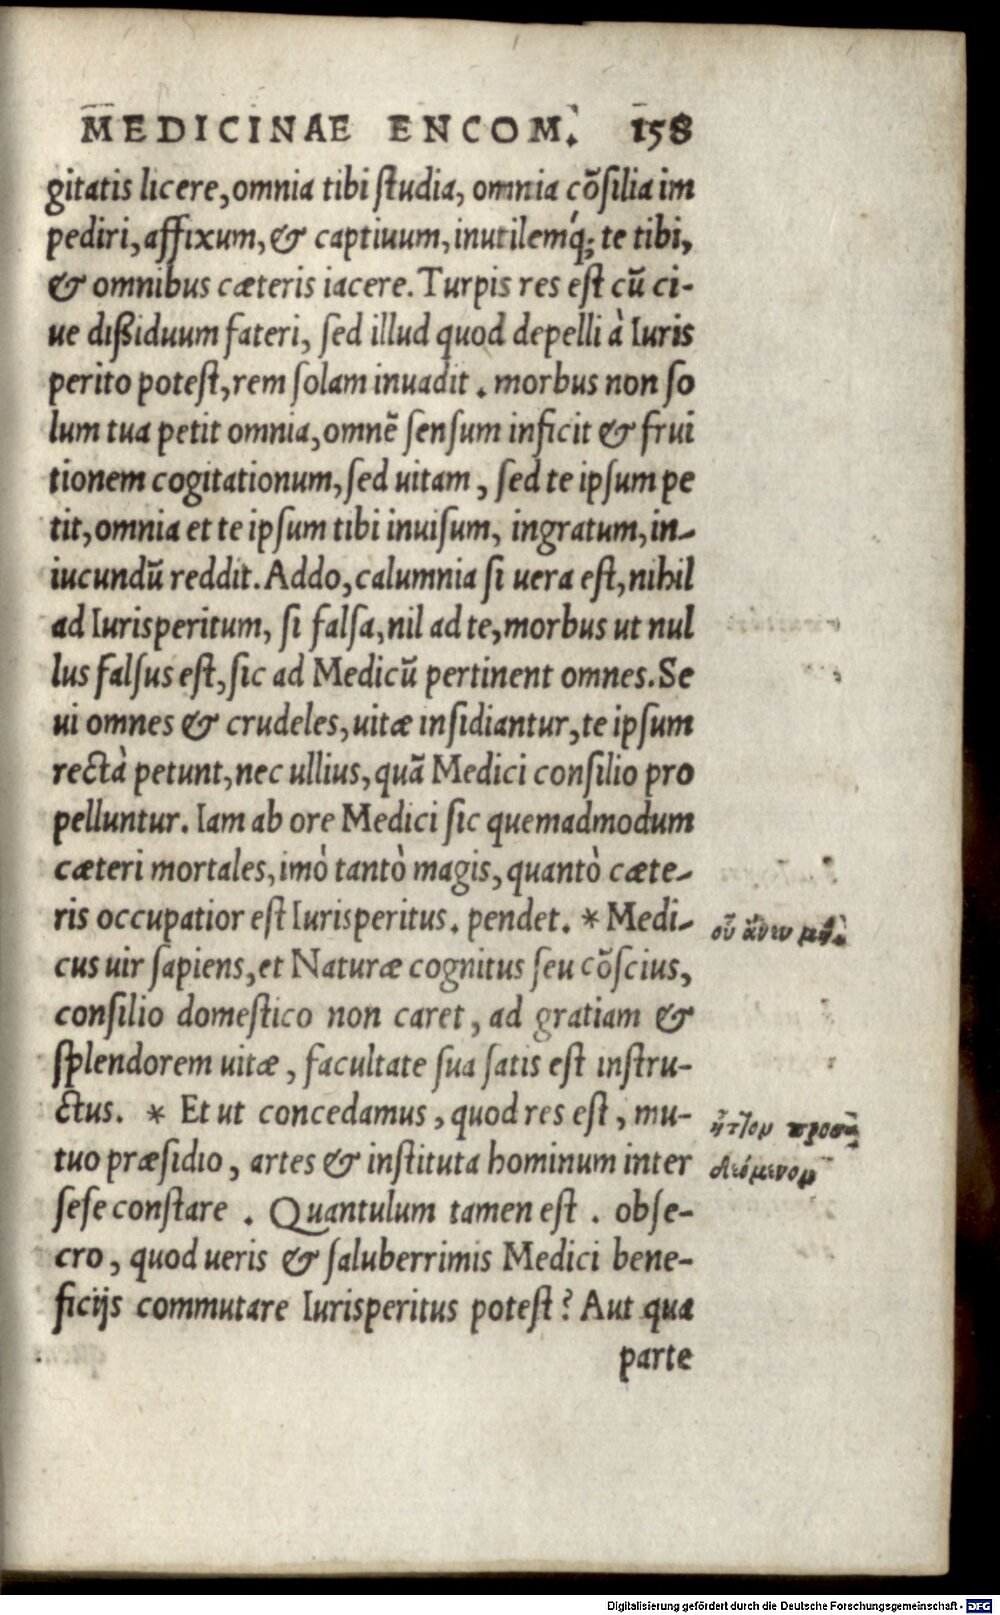 MEDICINAE ENCOM. 158
gitatis licere, omnia tibi studia, omnia cōsilia im
pediri, affixum, & captiuum, inutilemq́; te tibi,
& omnibus cæteris iacere. Turpis res est cū ci-
ue dißiduum fateri, sed illud quod depelli à Iuris
perito potest, rem solam inuadit. morbus non so
lum tua petit omnia, omnē sensum inficit & frui
tionem cogitationum, sed uitam, sed te ipsum pe
tit, omnia et te ipsum tibi inuisum, ingratum, in-
iucundū reddit. Addo, calumnia si uera est, nihil
ad Iurisperitum, si falsa, nil ad te, morbus ut nul
lus falsus est, sic ad Medicū pertinent omnes. Se
ui omnes & crudeles, uitæ insidiantur, te ipsum
rectà petunt, nec ullius, quā Medici consilio pro
pelluntur. Iam ab ore Medici sic quemadmodum
cæteri mortales, imò tantò magis, quantò cæte-
ris occupatior est Iurisperitus. pendet. * Medi-
cus uir sapiens, et Naturæ cognitus seu cōscius,
consilio domestico non caret, ad gratiam &
splendorem uitæ, facultate sua satis est instru-
ctus. * Et ut concedamus, quod res est, mu-
tuo præsidio, artes & instituta hominum inter
sese constare. Quantulum tamen est. obse-
cro, quod ueris & saluberrimis Medici bene-
ficijs commutare Iurisperitus potest? Aut qua
parte
Digitalisierung gefördert durch die Deutsche Forschungsgemeinschaft - DFG